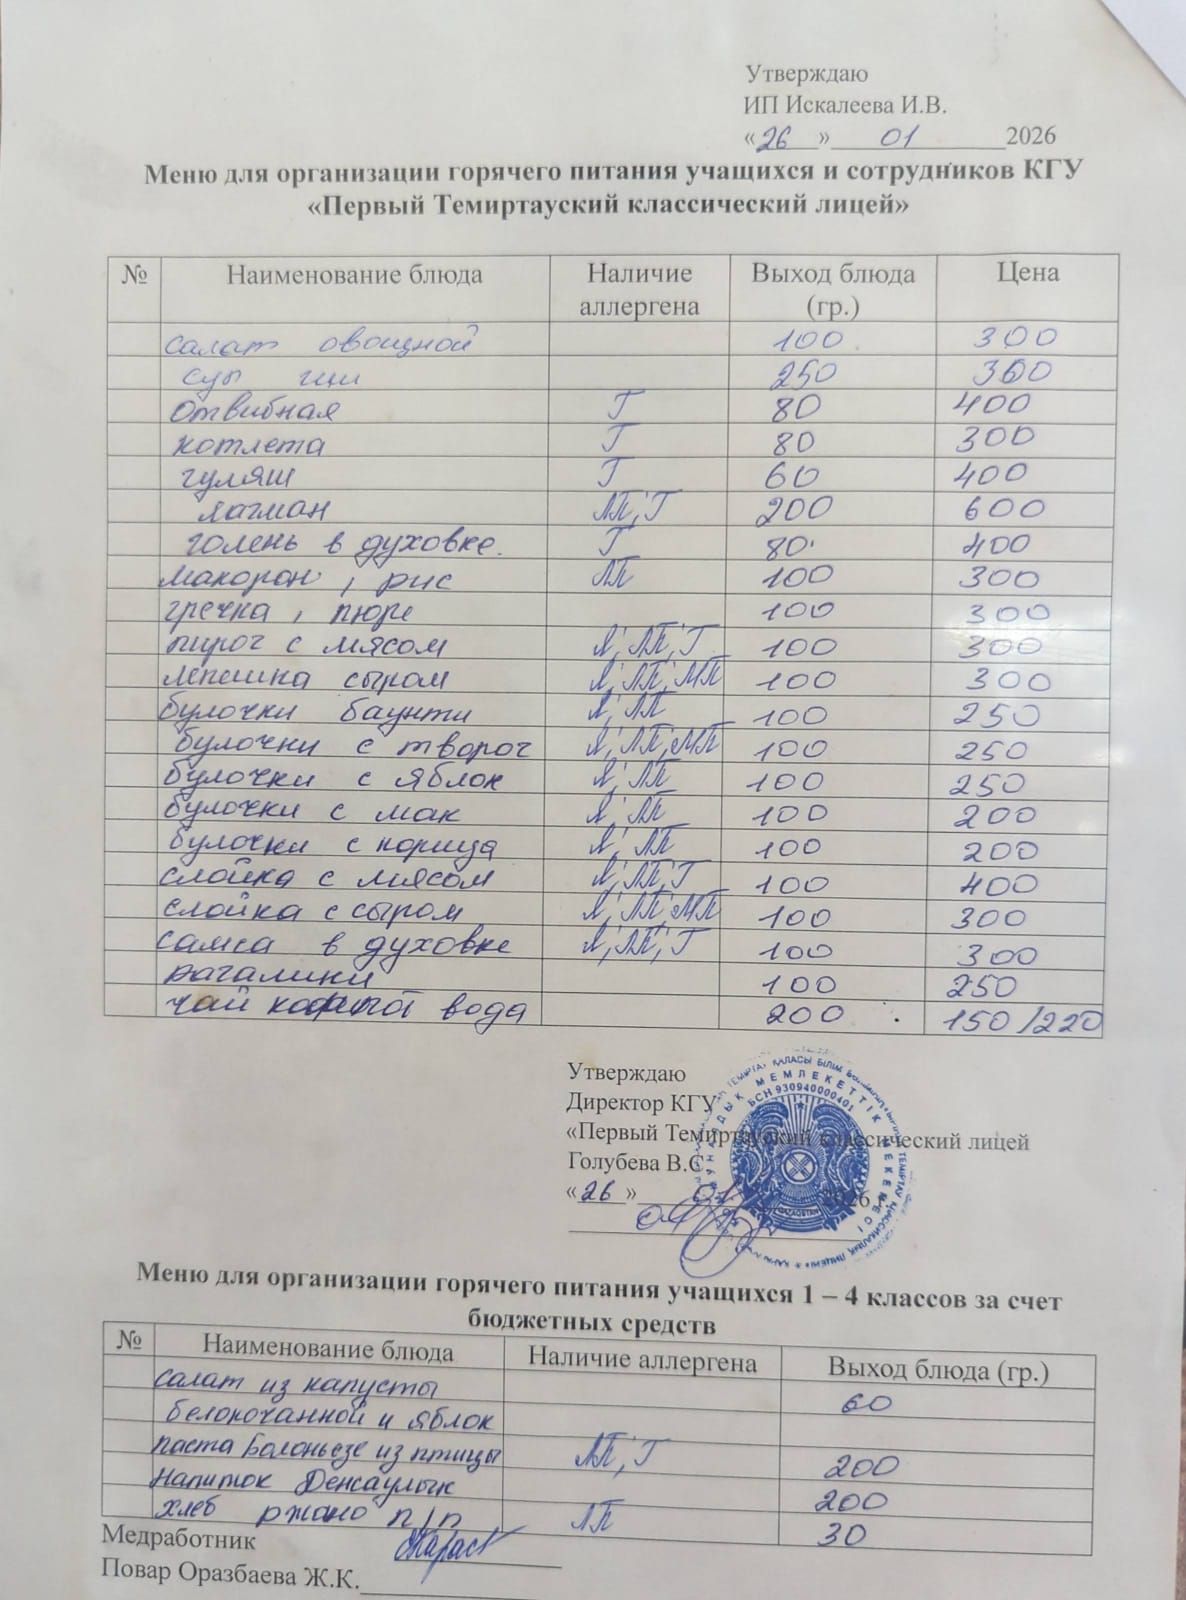 Утверждаю
ИП Искалеева И.В.
«26» 01 2026
Меню для организации горячего питания учащихся и сотрудников КГУ
«Первый Темиртауский классический лицей»
№ Наименование блюда Наличие аллергена Выход блюда (гр.) Цена
салат овощной 100 300
суп щи 250 300
отвибная Г 80 400
котлета Г 80 300
гуляш Г 60 400
лагман ЛП, Г 200 600
голень в духовке. Г 80 400
макорон, рис ЛП 100 300
гречка, пюре 100 300
пирог с мясом Я, ЛП, Г 100 300
лепешка сыром Я, ЛП, МП 100 300
булочки баунти Я, ЛП 100 250
булочки с творог Я, ЛП, МП 100 250
булочки с яблок Я, ЛП 100 250
булочки с мак Я, ЛП 100 200
булочки с корица Я, ЛП 100 200
слойка с мясом Я, ЛП, Г 100 400
слойка с сыром Я, ЛП, МП 100 300
самса в духовке Я, ЛП, Г 100 300
рагалики 100 250
чай вода 200 150/220
Утверждаю
Директор КГУ
«Первый Темиртауский классический лицей
Голубева В.С
«26» 01 2026 г.
БСН 930940000401
QAZAQSTAN
Меню для организации горячего питания учащихся 1 – 4 классов за счет
бюджетных средств
№ Наименование блюда Наличие аллергена Выход блюда (гр.)
салат из капусты 60
белокочанной и яблок
паста Болоньезе из птицы ЛП, Г 200
Напиток Денсаулык 200
хлеб ржано п/п ЛП 30
Медработник
Повар Оразбаева Ж.К.